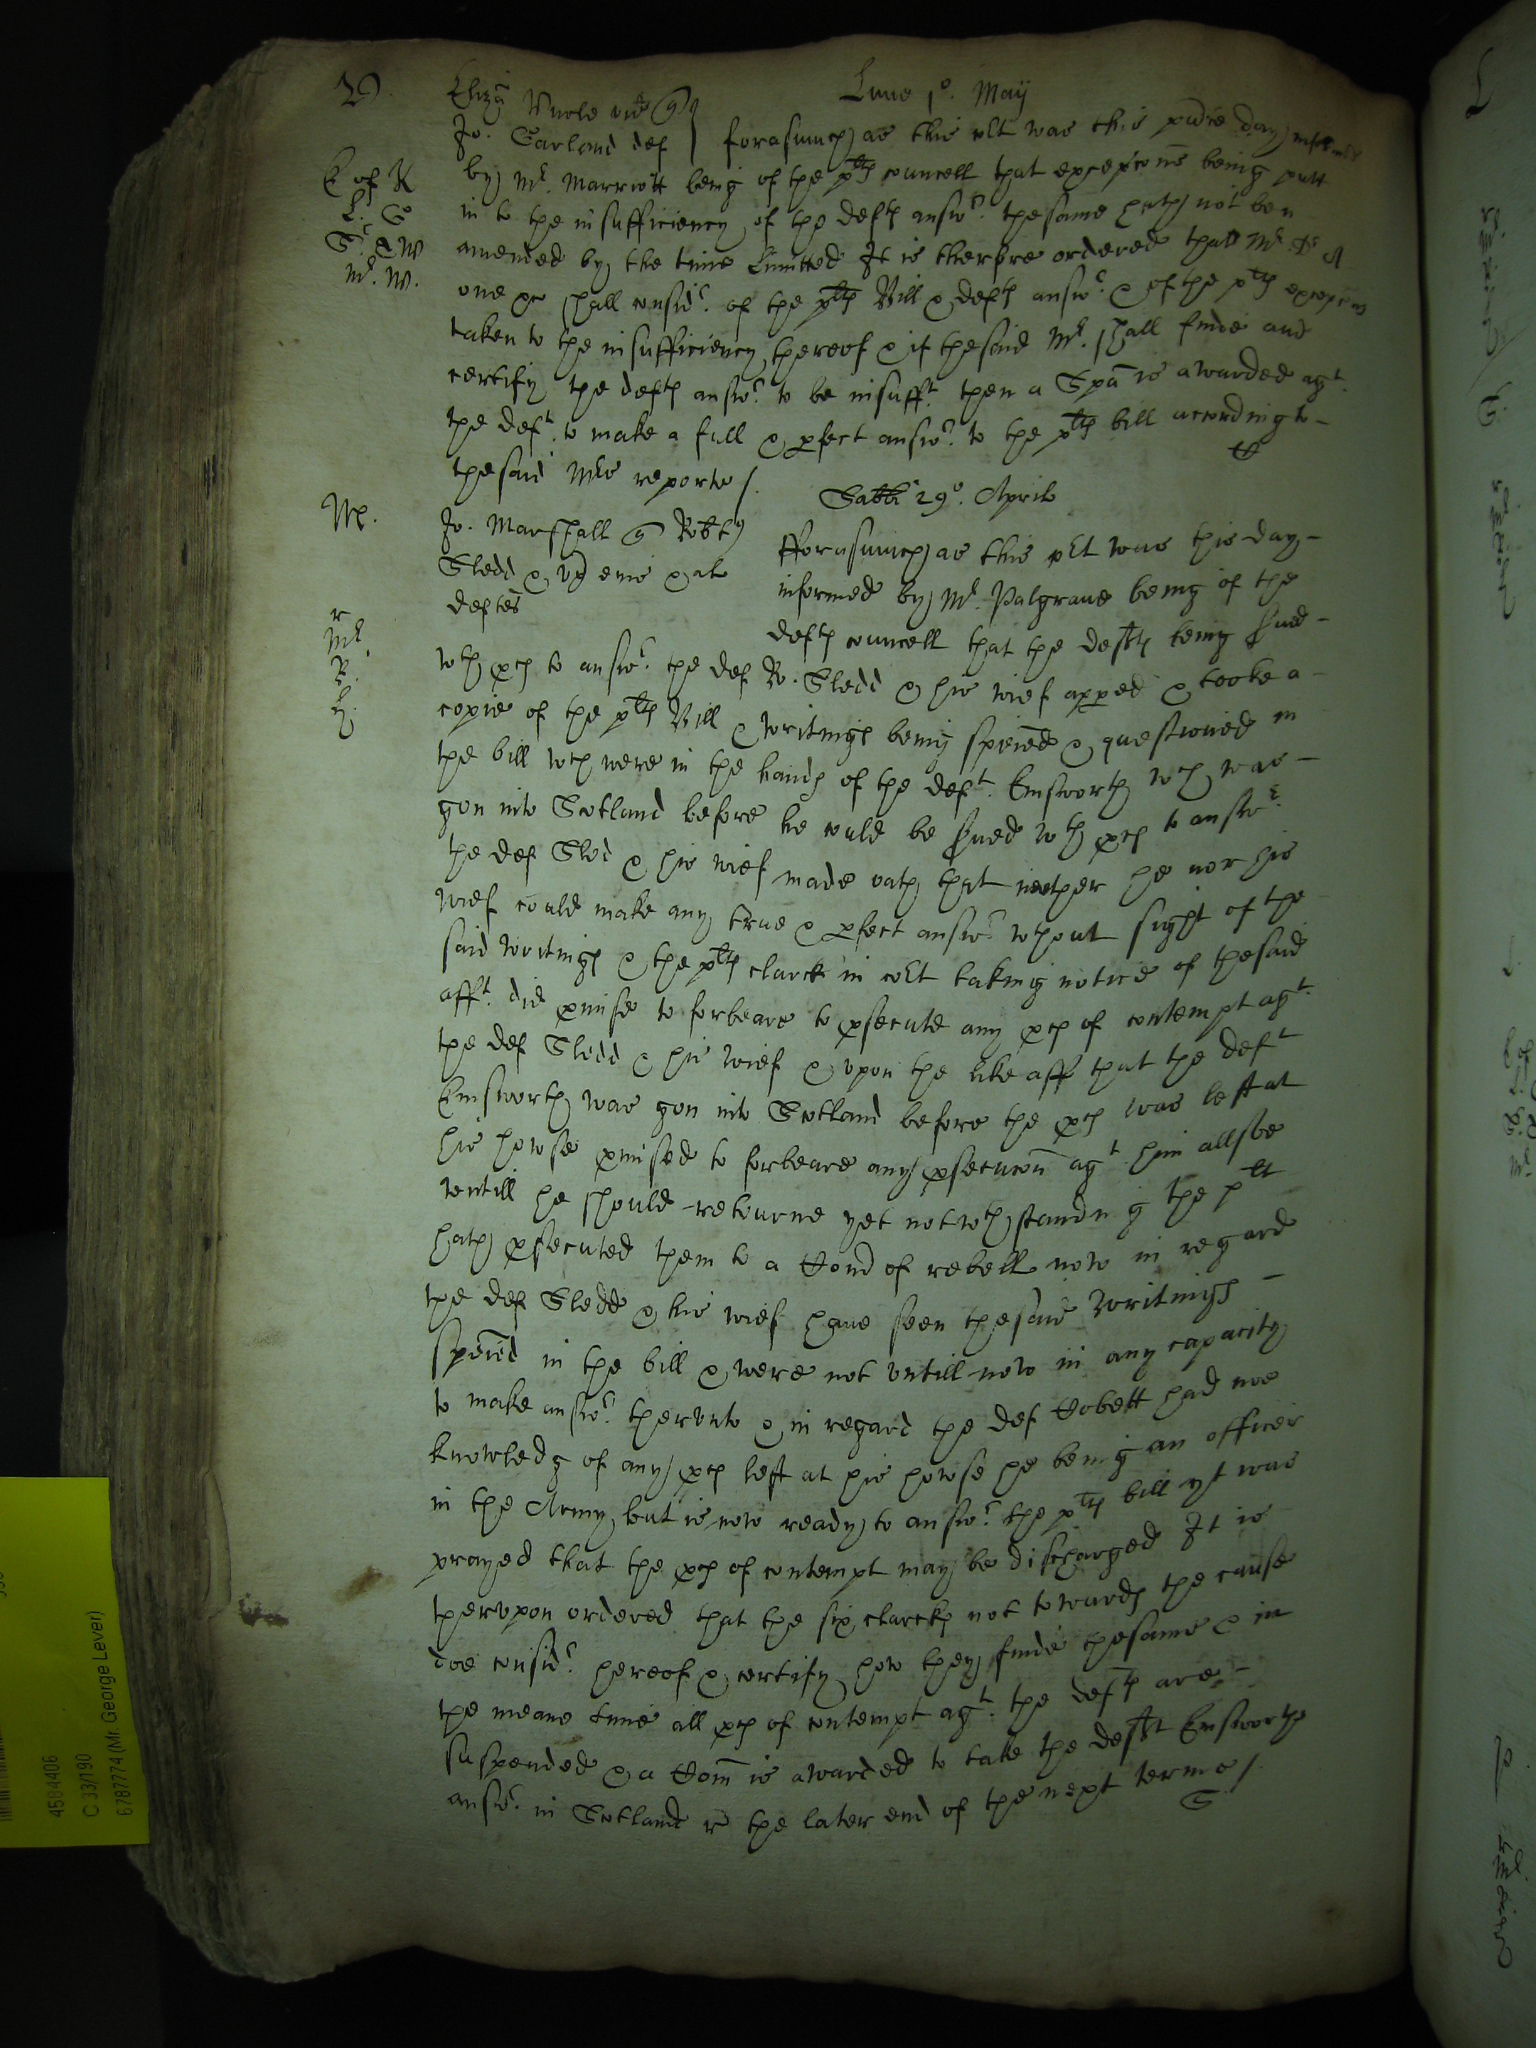 Lune 1o. May
Eliza vid q
Jo. Garland def forasmuch as this Cort was this pnte day informed
by Mr. Marriott being of the pltes councell that excepcons being putt
in to the insufficiency of the deftes answr. the same hath not ben
amended by the time limitted It is therfore ordered that Mr. Dr
one &c shall consider of the pltes Bill & deftes answr. & of the pltes excepcons
taken to the insufficiency thereof & if the said Mr. shall finde and
certify the deftes answr. to be insufft. then a Spa is awarded agt.
the deft. to make a full & pfect answr. to the pltes bill according to
the said Mrs reporte /.
Sabbi 29o. Aprilis
Jo. Marshall q Robt
Sledd & ux & als
deftes
fforasmuch as this Cort was this day
informed by Mr. Palgrave being of the
deftes councell that the deftes being sued
wth pces to answr. the def R. Sledd & his wief apped & tooke a
copie of the pltes Bill & writinges being specied & questioned in
the bill wch were in the handes of the deft. Emsworth wch was
gon into Scotland before he could be sued wth pces to answr.
the def Sled & his wief made oath that neither he nor his
wief could make any true & pfect answr. wthout sight of the
said writinges & the pltes clarck in Cort taking notice of the said
afft. did pmise to forbeare to psecute any pces of contempt agt.
the def Sledd & his wief & upon the like aff that the deft
Emsworth was gon into Scotland before the pces was left at
his howse pmised to forbeare any psecucon agt. him allsoe
untill he should retourne yet notwthstanding the plt
hath psecuted them to a Com of rebell now in regard
the def Sledd & his wief have seen the said writinges
specied in the bill & were not untill now in any capacity
to make answr. therunto & in regard the def Cobett had noe
knowledg of any pces left at his howse he being an officer
in the Army but is now ready to answr. the pltes bill yt was
prayed that the pces of contempt may be discharged It is
therupon ordered that the six clarckes not towardes the cause
doe considr. hereof & certify how they finde the same & in
the meane time all pces of contempt agt. the deftes are
suspended & a Com is awarded to take the deft Emsworthes
answr. in Scotland r the later end of the next terme /.
4584406
C 33/190
6787774 (Mr. George Lever)